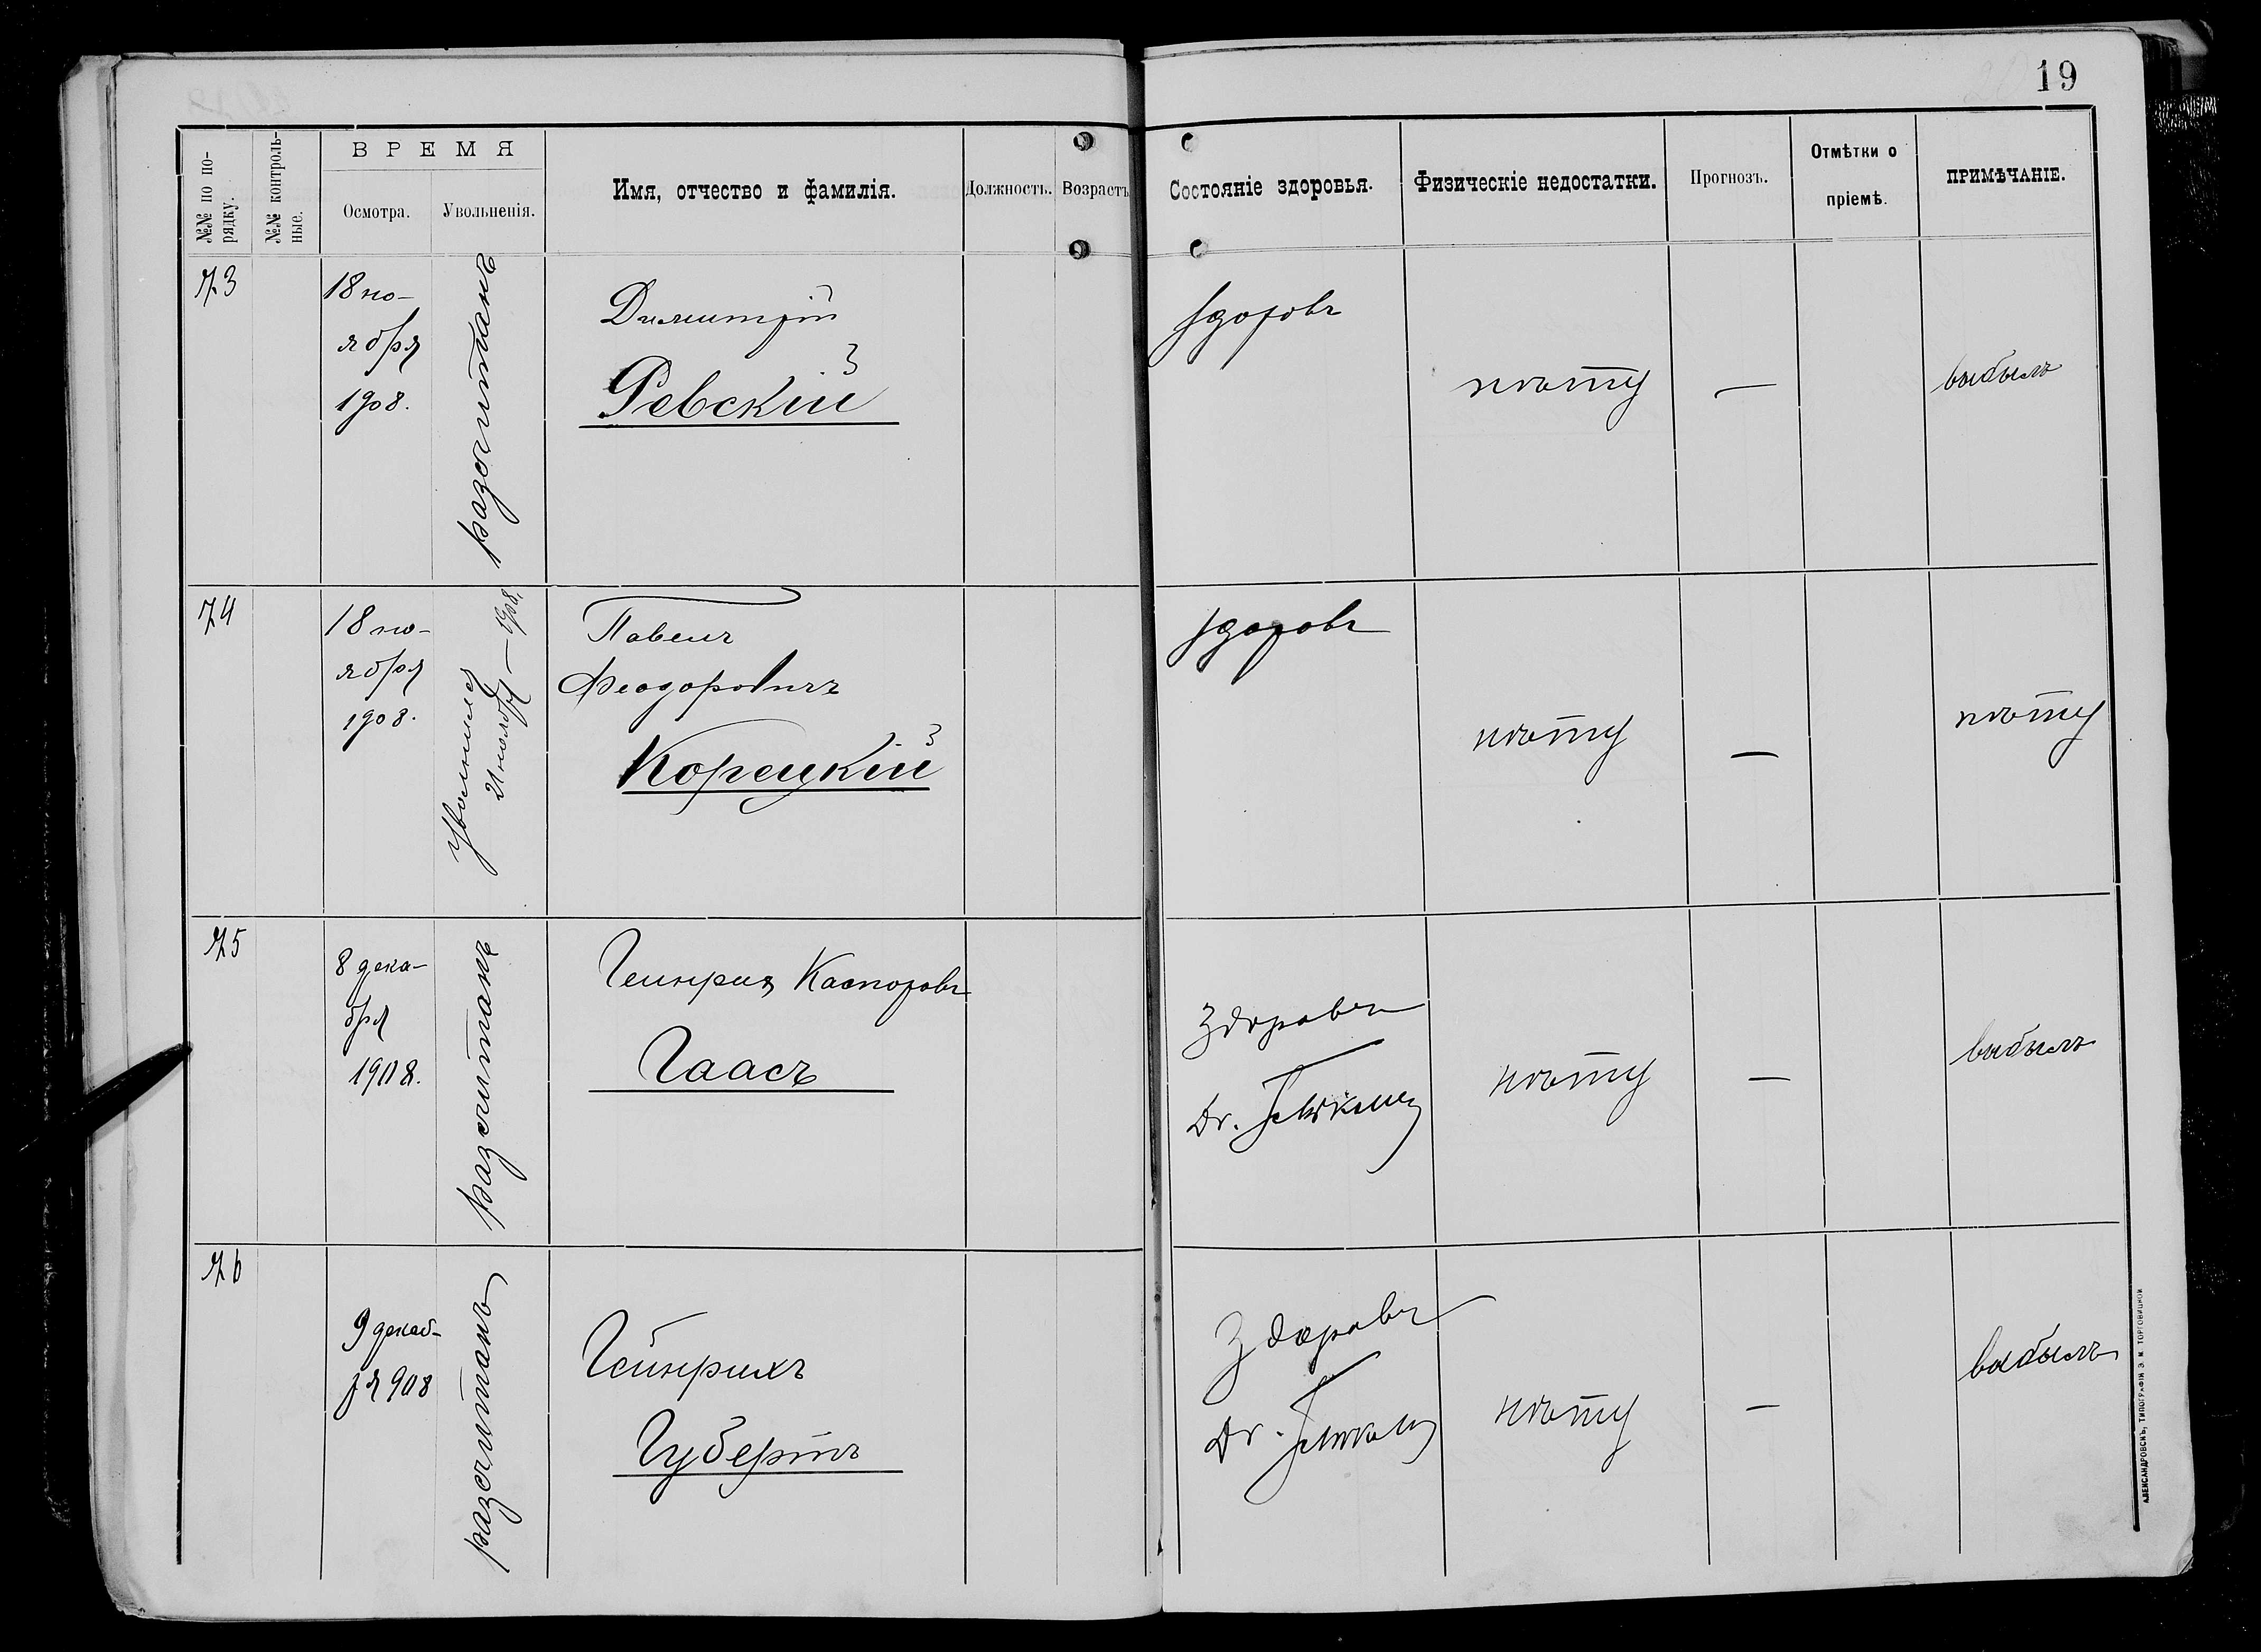 19
ВРЕМЯ
№№ по по-
рядку.
№№ контроль-
ные.
Осмотра.
Увольненія.
Имя, отчество и фамилія.
Должность.
Возрастъ
Состояніе здоровья.
Физическіе недостатки.
Прогнозъ.
Отмѣтки о
пріемѣ.
ПРИМѢЧАНІЕ.
73
18 но-
ября
1908.
разсчитанъ
Димитрій
Ревскій
здоровъ
нѣту
—
выбылъ
74
18 но-
ября
1908.
уволнился
21 ноября — 908.
Павелъ
Феодоровичъ
Корецкій
здоровъ
нѣту
—
нѣту
75
8 дека-
бря
1908.
разсчитанъ
Генрих Каспоровъ
Гаасъ
Здоровъ
Dr.
нѣту
—
выбылъ
76
9 декаб-
ря 908
разсчитанъ
Гейнрихъ
Губертъ
Здоровъ
Dr.
нѣту
—
выбылъ
АЛЕКСАНДРОВСКЪ, ТИПОГРАФІЯ Э. М. ТОРГОВИЦКОЙ